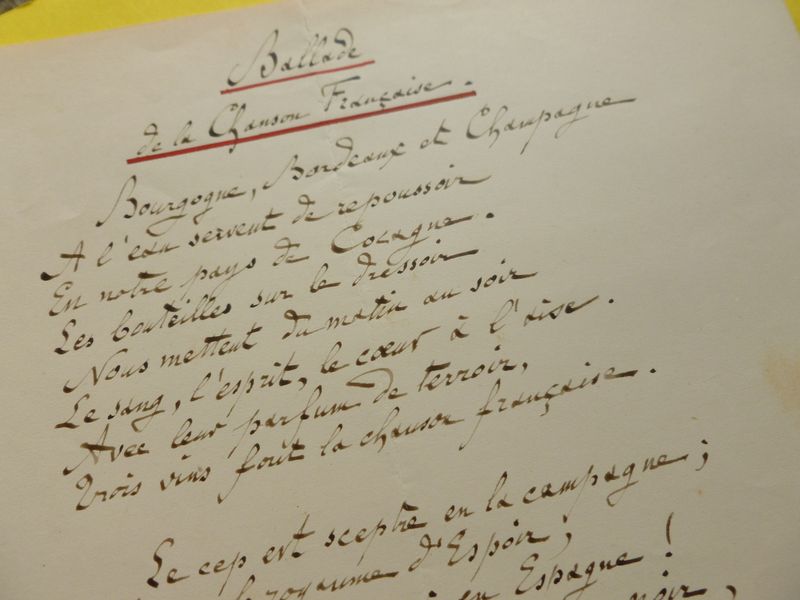 Ballade
de la Chanson Française.
Bourgogne, Bordeaux et Champagne
A l'eau servent de repoussoir
En notre pays de Cocagne.
Les bouteilles sur le dressoir
Nous mettent du matin au soir
Le sang, l'esprit, le cœur à l'aise.
Avec leur parfum de terroir,
Trois vins font la chanson française.
Le cep est sceptre en la campagne;
royaume d'Espoir;
en Espagne!
noir,